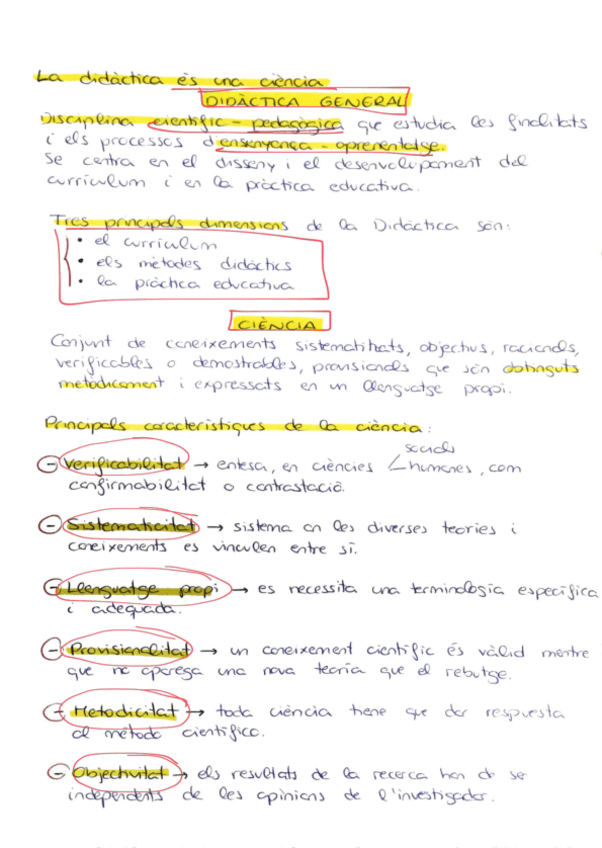 La didàctica és una ciència
DIDÀCTICA GENERAL
Disciplina científic - pedagògica que estudia les finalitats
i els processos d'ensenyança - aprenentatge.
Se centra en el disseny i el desenvolupament del
currículum i en la pràctica educativa.
Tres principals dimensions de la Didàctica són:
• el currículum
• els mètodes didàctics
• la pràctica educativa
CIÈNCIA
Conjunt de coneixements sistematitzats, objectius, racionals,
verificables o demostrables, provisionals que són obtinguts
metòdicament i expressats en un llenguatge propi.
Principals característiques de la ciència:
socials
- Verificabilitat → entesa, en ciències humanes, com
confirmabilitat o contrastació.
- Sistematicitat → sistema on les diverses teories i
coneixements es vinculen entre sí.
- Llenguatge propi → es necessita una terminologia específica
i adequada.
- Provisionalitat → un coneixement científic és vàlid mentre
que no aparega una nova teoria que el rebutge.
- Metodicitat → toda ciència tiene que dar respuesta
al método científico.
- Objectivitat → els resultats de la recerca han de ser
independents de les opinions de l'investigador.